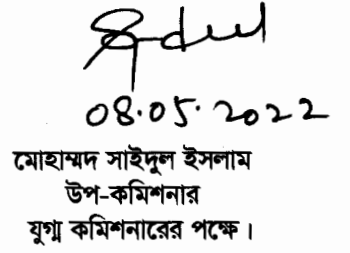 08.05.2022
মোহাম্মদ সাইদুল ইসলাম
উপ-কমিশনার
যুগ্ম কমিশনারের পক্ষে।